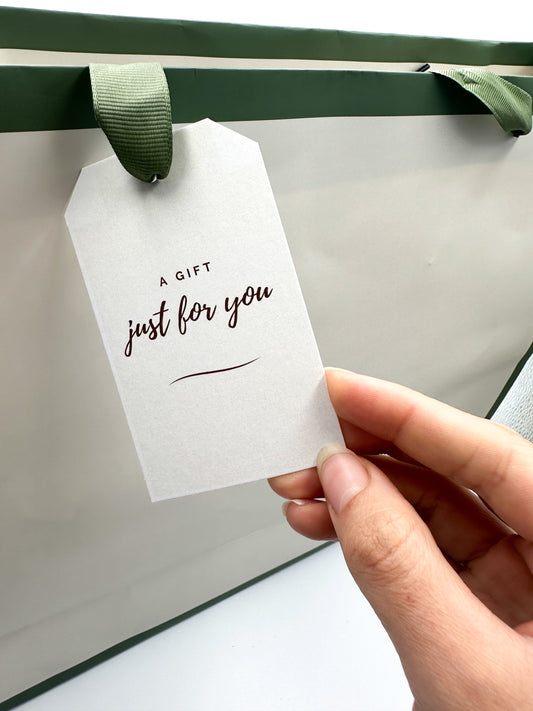 A GIFT
just for you